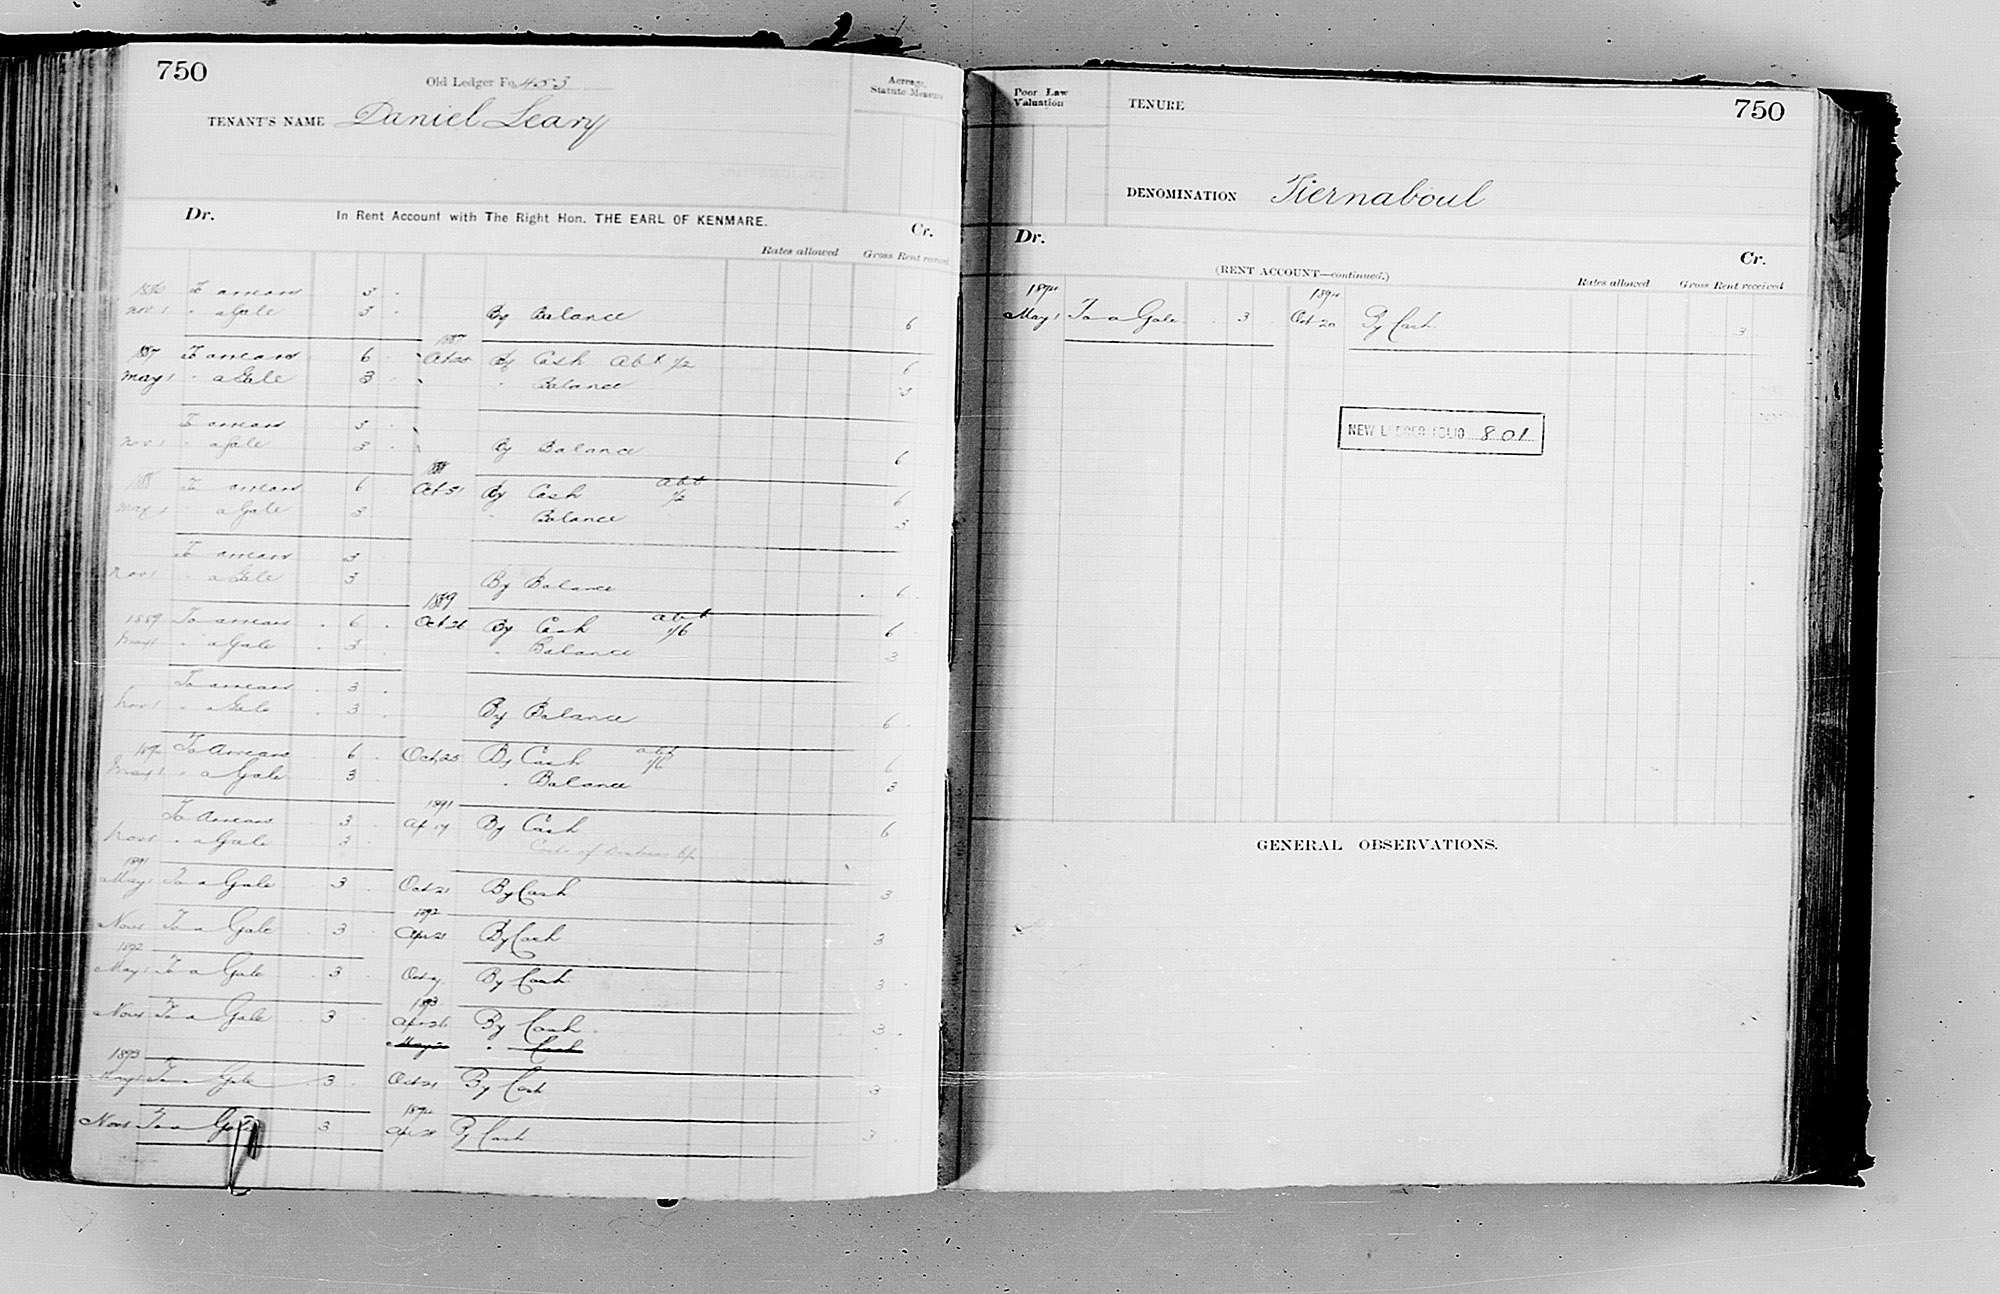 750
Old Ledger Fo. 453
Acreage, Statute Measure
TENANT'S NAME Daniel Leary
Dr. In Rent Account with The Right Hon. THE EARL OF KENMARE. Cr.
Rates allowed Gross Rent received
1886 To arrears 3
Nov 1 " a Gale 3 By Balance 6
1887
1887 To arrears 6 By Cash Abt 1/2 6
May 1 " a Gale 3 " Balance 3
To arrears 3
Nov 1 " a Gale 3 By Balance 6
1888
To arrears 6 Oct 31 By Cash abt 1/2 6
May 1 " a Gale 3 " Balance 3
To arrears 3
Nov 1 " a Gale 3 By Balance 6
1889
1889 To arrears 6 Oct 26 By Cash abt 1/6 6
May 1 " a Gale 3 " Balance 3
To arrears 3
Nov 1 " a Gale 3 By Balance 6
To Arrears 6 Oct 25 By Cash abt 1/6 6
May 1 " a Gale 3 " Balance 3
1891
To Arrears 3 Ap 17 By Cash 6
Nov 1 " a Gale 3 Costs of
1891
May 1 To a Gale 3 Oct 21 By Cash 3
1892
Nov 1 To a Gale 3 Apr 21 By Cash 3
1892
May 1 To a Gale 3 Oct By Cash 3
1893
Nov 1 To a Gale 3 Apr 26 By Cash 3
May " Cash
1893
May 1 To a Gale 3 Oct 21 By Cash 3
1894
Nov 1 To a Gale 3 Apr By Cash 3
Poor Law Valuation
TENURE
750
DENOMINATION Tiernaboul
Dr. Cr.
(RENT ACCOUNT—continued.)
Rates allowed Gross Rent received
1894 1894
May 1 To a Gale 3 Oct 20 By Cash 3
NEW LEDGER FOLIO 801
GENERAL OBSERVATIONS.